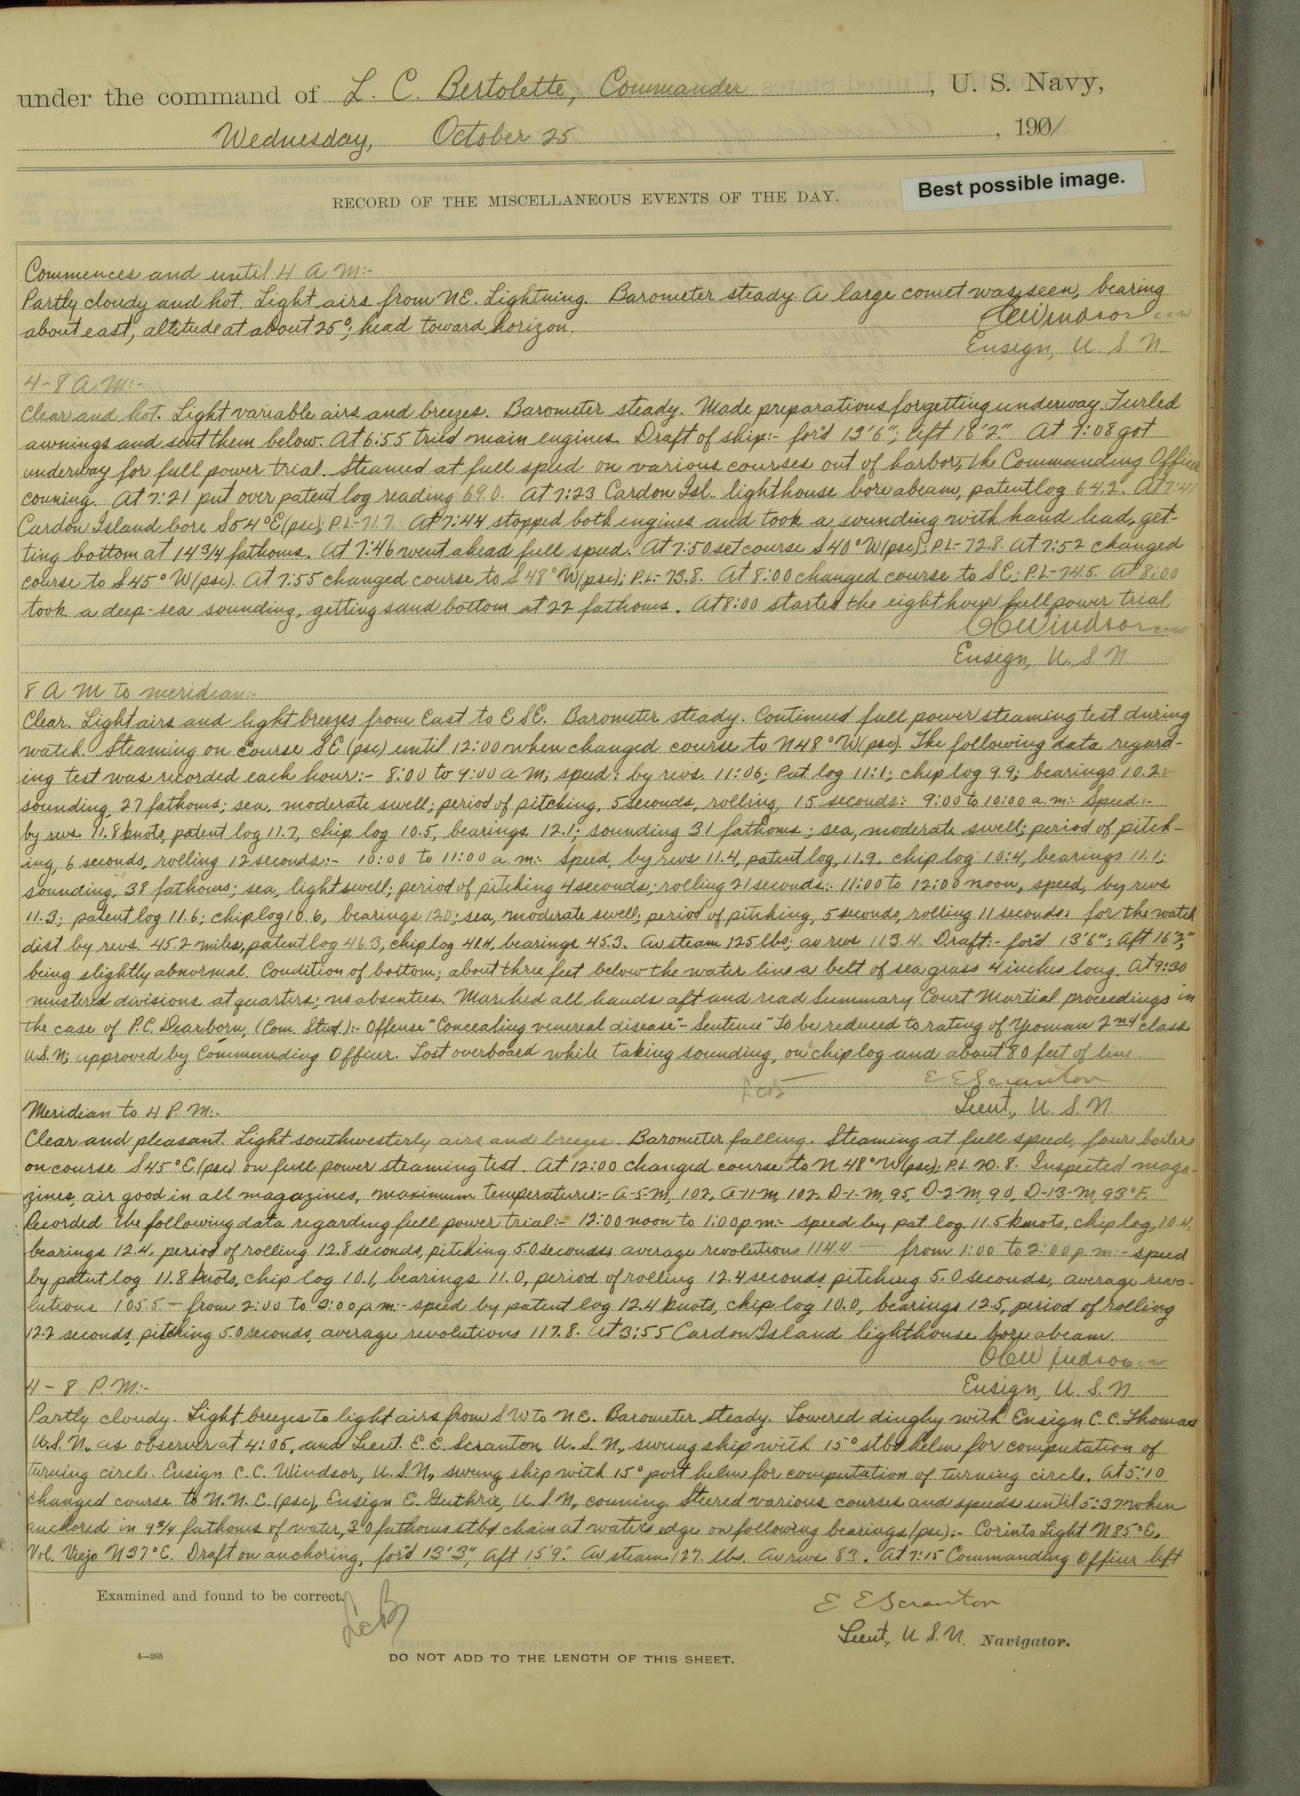 under the command of L. C. Bertolette, Commander, U. S. Navy,
Wednesday, October 25, 1901
Best possible image.
RECORD OF THE MISCELLANEOUS EVENTS OF THE DAY.
Commences and until 4 A M:-
Partly cloudy and hot. Light airs from NE. Lightning. Barometer steady. A large comet was seen, bearing
about east, altitude at about 25°, head toward horizon.
CCWindsor
Ensign, U. S N.
4-8 A M:-
Clear and hot. Light variable airs and breezes. Barometer steady. Made preparations for getting underway. Furled
awnings and sent them below. At 6:55 tried main engines. Draft of ship:- for'd 13'6"; Aft 16'2". At 7:08 got
underway for full power trial. Steamed at full speed on various courses out of harbor, the Commanding Officer
conning. At 7:21 put over patent log reading 69.0. At 7:23 Cardon Isl. lighthouse bore abeam, patent log 64.2. At 7:41
Cardon Island bore S54°E(psc); P.L-71.7. At 7:44 stopped both engines and took a sounding with hand lead, get-
ting bottom at 14 3/4 fathoms. At 7:46 went ahead full speed. At 7:50 set course S40°W(psc); P.L- 72.8. At 7:52 changed
course to S45°W(psc). At 7:55 changed course to S48°W(psc); P.L- 73.8. At 8:00 changed course to SE; P.L-74.5. At 8:00
took a deep-sea sounding, getting sand bottom at 22 fathoms. At 8:00 started the eight hour full power trial.
CCWindsor
Ensign, U. S N
8 A M to meridian:-
Clear. Light airs and light breezes from East to ESE. Barometer steady. Continued full power steaming test during
watch. Steaming on course SE (psc) until 12:00 when changed course to N48°W(psc). The following data regard-
ing test was recorded each hour:- 8:00 to 9:00 a.m; speed: by revs. 11:06; Pat. log 11:1; chip log 9.9; bearings 10.2;
sounding, 27 fathoms; sea, moderate swell; period of pitching, 5 seconds, rolling 15 seconds: 9:00 to 10:00 a.m: Speed:-
by revs 11.8 knots, patent log 11.7, chip log 10.5, bearings 12.1; sounding 31 fathoms; sea, moderate swell; period of pitch-
ing, 6 seconds, rolling 12 seconds:- 10:00 to 11:00 a.m: speed, by revs 11.4, patent log, 11.9. chip log 10:4, bearings 11.1;
sounding, 38 fathoms; sea, light swell; period of pitching 4 seconds; rolling 21 seconds:- 11:00 to 12:00 noon, speed, by revs
11.3; patent log 11.6; chip log 10.6, bearings 12.0; sea, moderate swell; period of pitching, 5 seconds, rolling 11 seconds: for the watch
dist by revs. 45.2 miles, patent log 46.3, chip log 41.4, bearings 45.3. Av steam 125 lbs; av revs 113.4. Draft:- for'd 13'6"; Aft 16'2",
being slightly abnormal. Condition of bottom; about three feet below the water line a belt of sea grass 4 inches long. At 9:30
mustered divisions at quarters; no absentees. Marched all hands aft and read Summary Court Martial proceedings in
the case of P.C. Dearborn, (Com. Stwd):- Offense "Concealing venereal disease"- Sentence "To be reduced to rating of Yeoman 2nd class
U.S.N; approved by Commanding Officer. Lost overboard while taking sounding, one chip log and about 80 feet of line.
LCB
E E Scranton
Lieut, U. S. N.
Meridian to 4 P.M:-
Clear and pleasant. Light southwesterly airs and breezes. Barometer falling. Steaming at full speed, four boilers
on course S45°E(psc) on full power steaming test. At 12:00 changed course to N 48°W(psc); P.L. 20.8. Inspected maga-
zines, air good in all magazines, maximum temperatures:- A-5-M, 102, A-11-M, 102. D-1-M, 95, D-2-M, 90, D-13-M, 93°F.
Recorded the following data regarding full power trial:- 12:00 noon to 1:00 p.m:- speed by pat. log. 11.5 knots, chip log, 10.4,
bearings 12.4. period of rolling 12.8 seconds, pitching 5.0 seconds, average revolutions 114.4 — from 1:00 to 2:00 p.m:- speed
by patent log 11.8 knots, chip log 10.1, bearings 11.0, period of rolling 12.4 seconds, pitching 5.0 seconds, average revo-
lutions 105.5 - from 2:00 to 3:00 p.m:- speed by patent log 12.4 knots, chip log 10.0, bearings 12.5, period of rolling
12.2 seconds, pitching 5.0 seconds, average revolutions 117.8. At 3:55 Cardon Island lighthouse bore abeam.
CCWindsor
Ensign, U. S. N
4 - 8 P.M:-
Partly cloudy. Light breezes to light airs from SW to NE. Barometer steady. Lowered dinghy with Ensign C.C. Thomas
U.S.N., as observer at 4:05, and Lieut. E. E. Scranton, U. S. N., swung ship with 15° stbd helm for computation of
turning circle. Ensign C. C. Windsor, U.S.N., swung ship with 15° port helm for computation of turning circle. At 5:10
changed course to N. N. E. (psc), Ensign E. Guthrie, U. S. N, conning. Steered various courses and speeds until 5:37 when
anchored in 9 3/4 fathoms of water, 30 fathoms stbd chain at water's edge on following bearings (psc):- Corinto Light N85°E.
Vol. Viejo N37°E. Draft on anchoring, for'd 13'3", aft 15'9". Av steam 127 lbs. Av revs 83. At 7:15 Commanding Officer left
Examined and found to be correct.
LCB
E E Scranton
Lieut, U. S. N. Navigator.
4—265
DO NOT ADD TO THE LENGTH OF THIS SHEET.